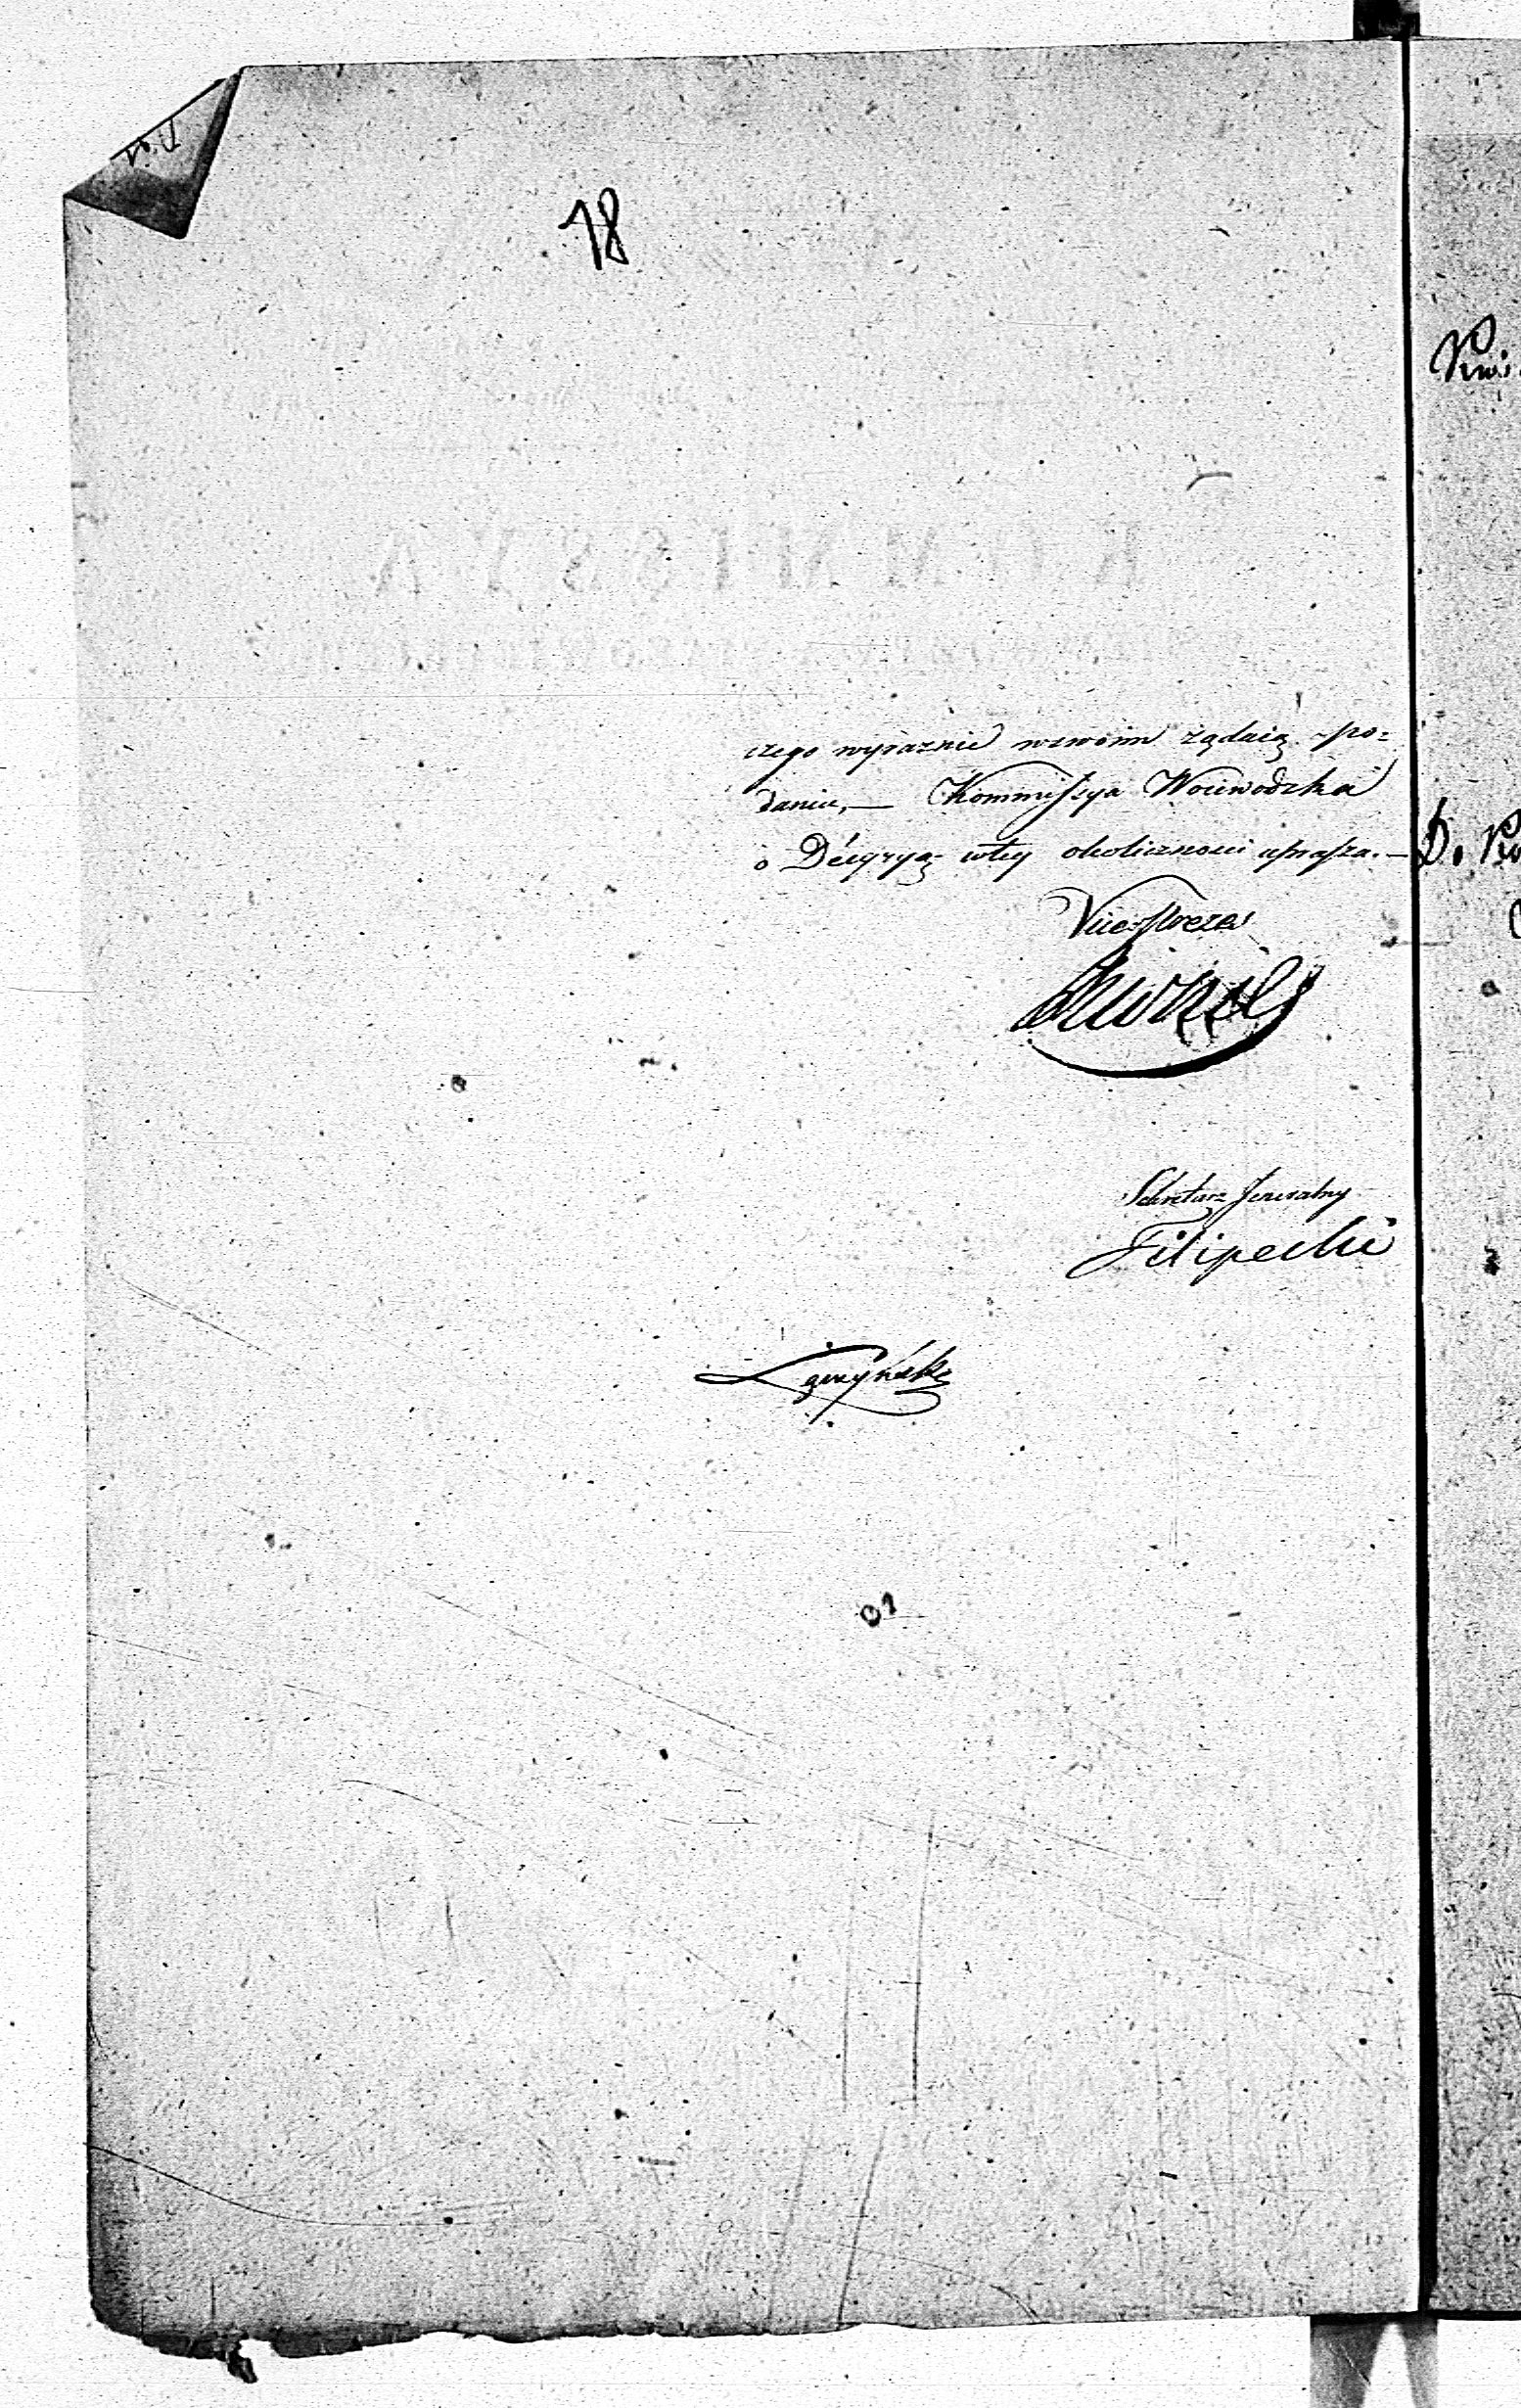 18
czego wyraznie wswoim żądaią po=
daniu, — Kommissya Woiewodzka
o Decyzyą wtey okoliczności uprasza. —
Vice Prezes
Sekretarz Jeneralny
Filipecki
Łączyński